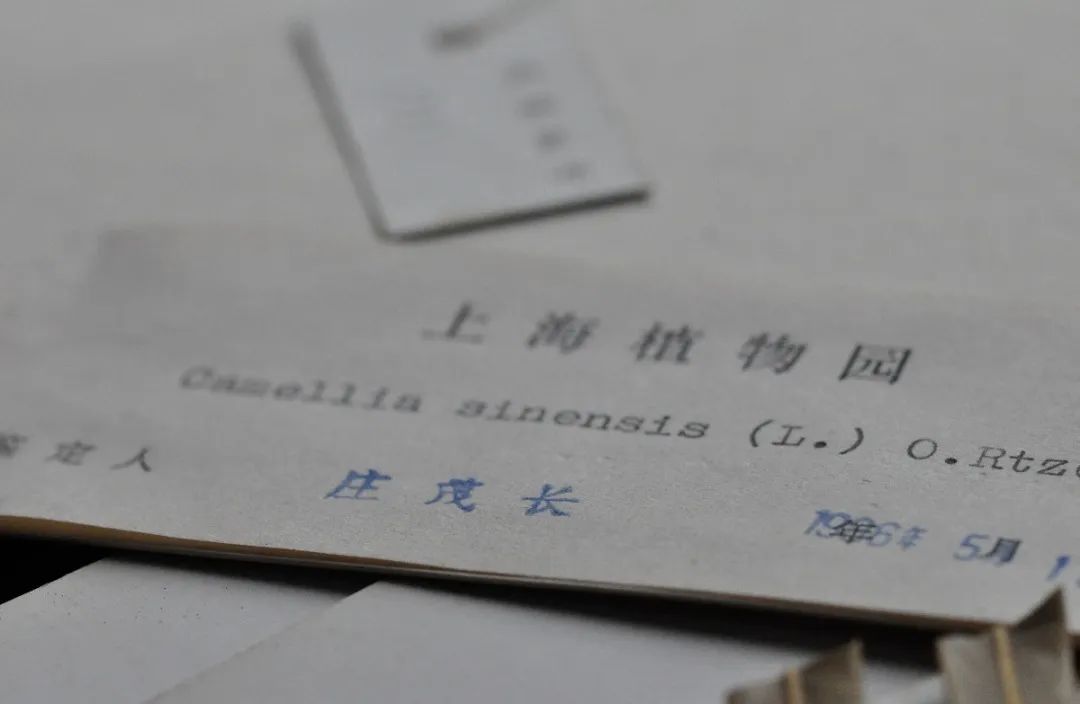 上海植物园
Camellia sinensis (L.) O.Rtz
鉴定人 庄茂长 1996年 5月 1